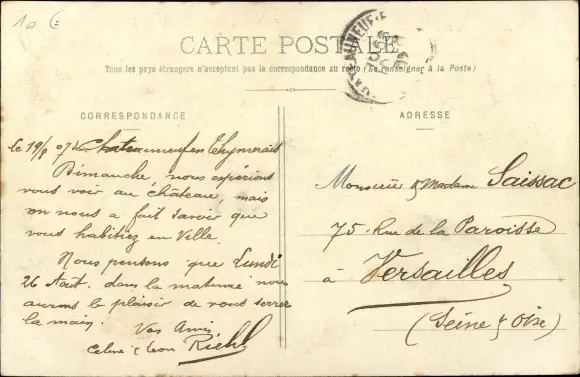 10 c
CARTE POSTALE
Tous les pays étrangers n'acceptent pas la correspondance au recto (Se renseigner à la Poste)
CORRESPONDANCE
ADRESSE
le 19/8 07 Chateauneuf en Thymerais
Dimanche nous espérions
vous voir au château, mais
on nous a fait savoir que
vous habitiez en Ville.
Nous pensons que Lundi
26 Août. dans la matinée nous
aurons le plaisir de vous serrer
la main.
Vos Amis
Celine & Leon Riehl
Monsieur & Madame Saissac
75 - Rue de la Paroisse
à Versailles
(Seine & Oise)